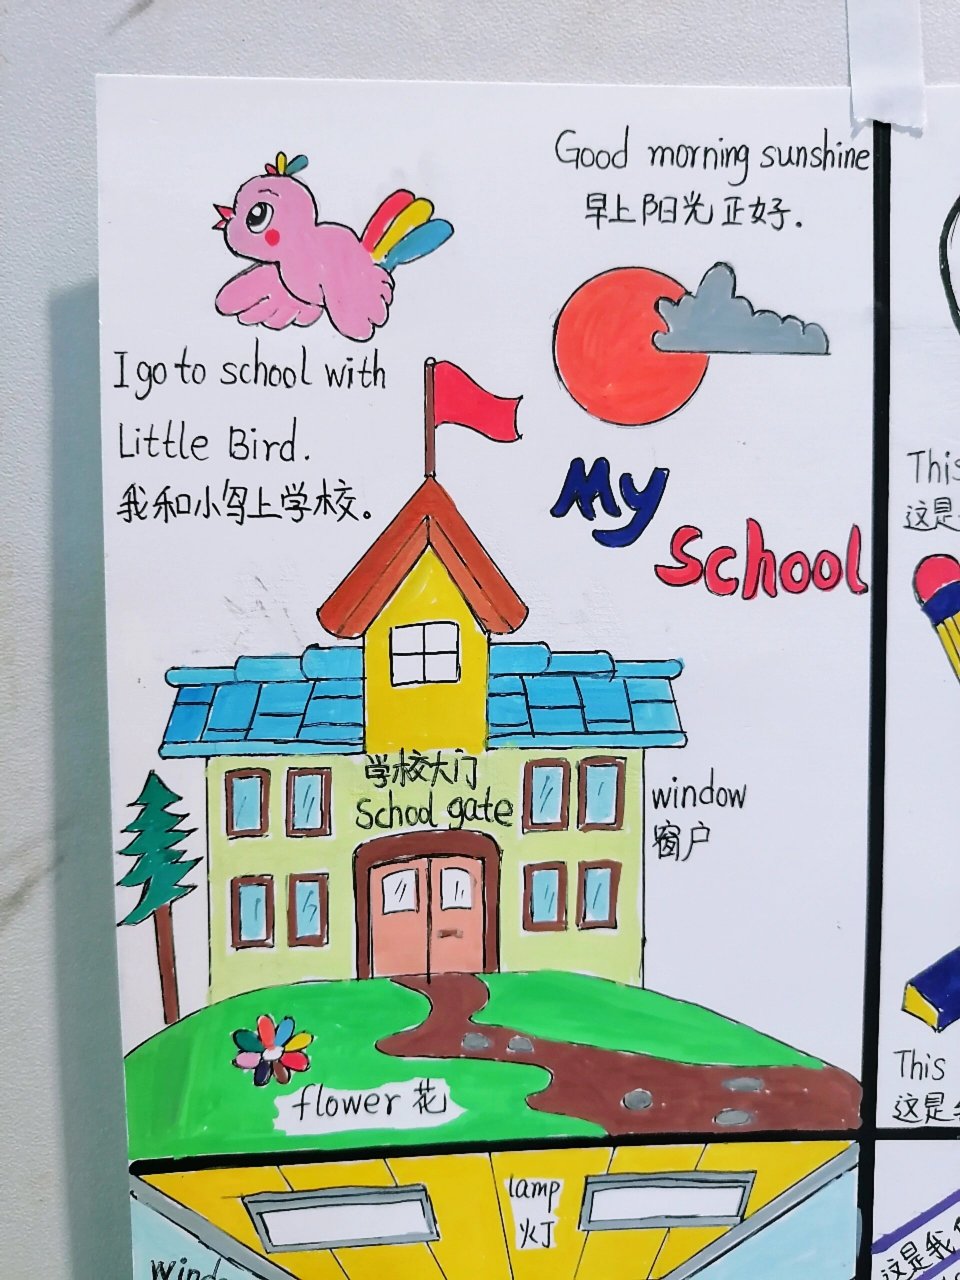 Good morning sunshine
早上阳光正好.
I go to school with
Little Bird.
我和小鸟上学校。
My
School
学校大门
School gate
window
窗户
flower 花
lamp
灯
This
这是
This
这是
这是我